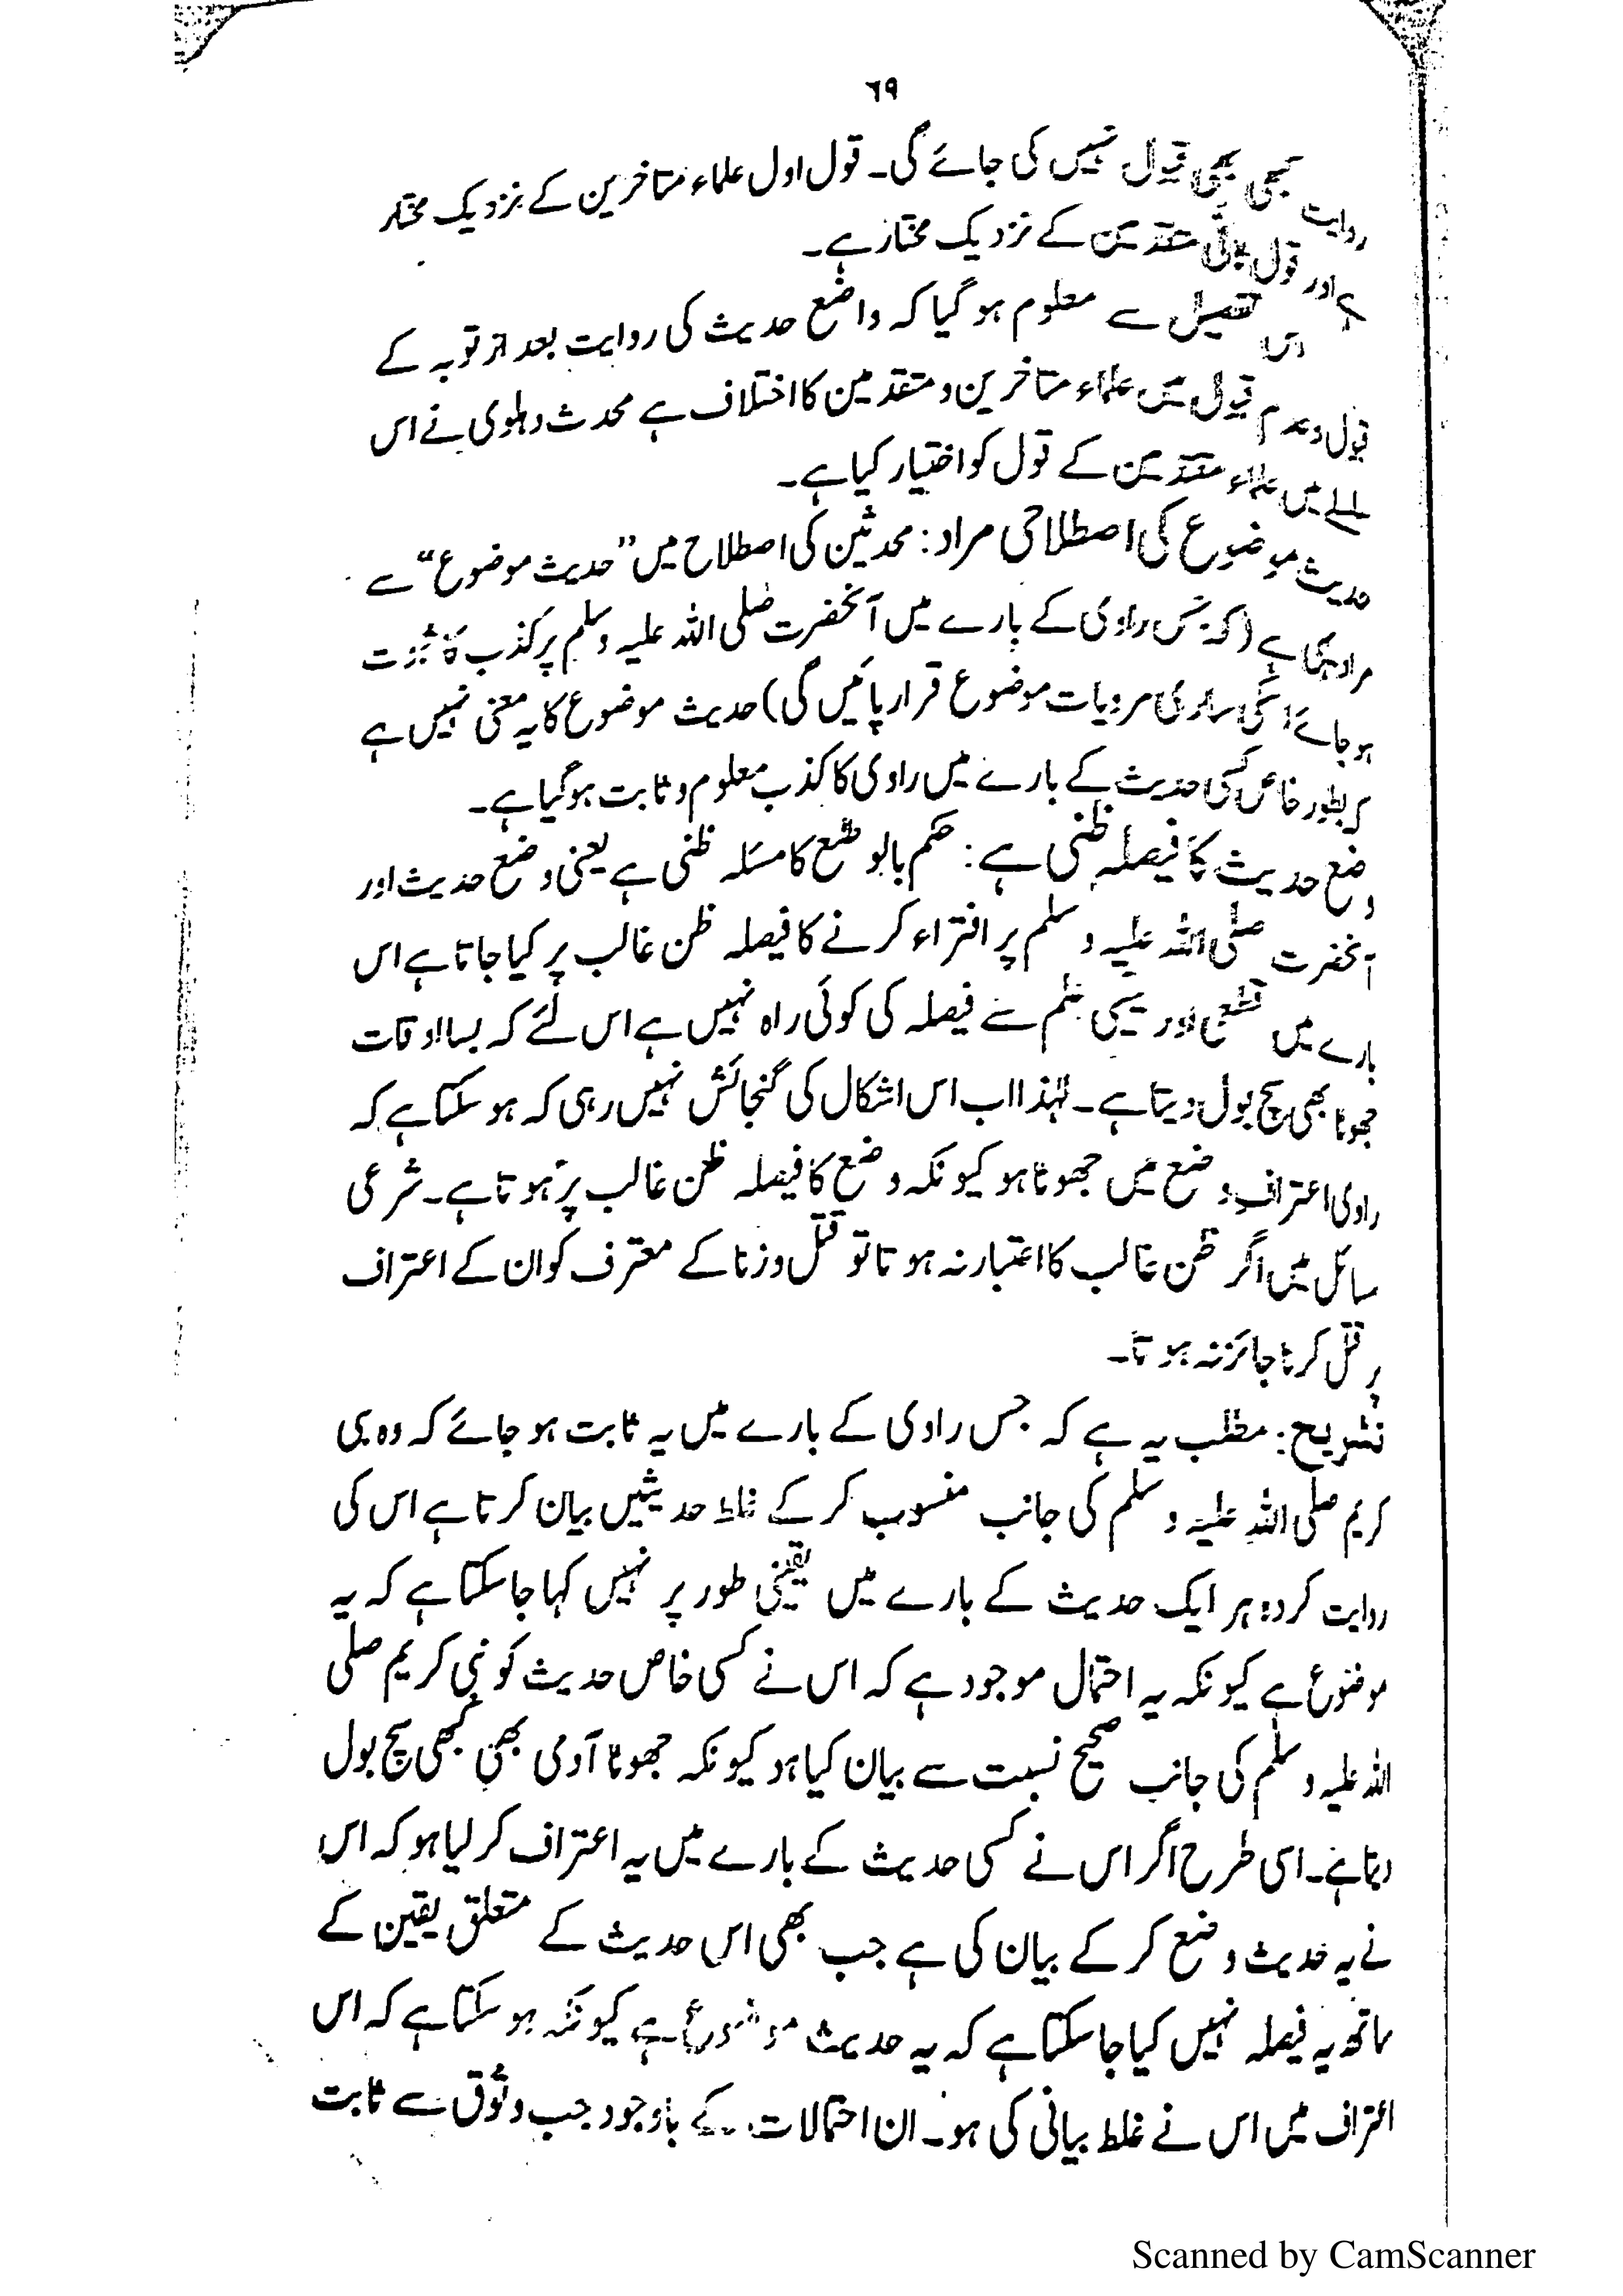 ٦٩
روایت کبھی بھی قبول نہیں کی جائے گی۔ قول اول علماء متاخرین کے نزدیک مختار
ہے اور قول ثانی متقدمین کے نزدیک مختار ہے۔
اس تفصیل سے معلوم ہو گیا کہ واضع حدیث کی روایت بعد از توبہ کے
قبول و عدم قبول میں علماء متاخرین و متقدمین کا اختلاف ہے محدث دہلوی نے اس
میں علماء متقدمین کے قول کو اختیار کیا ہے۔
حدیث موضوع کی اصطلاحی مراد: محدثین کی اصطلاح میں ”حدیث موضوع“ سے
مراد یہی ہے (کہ جس راوی کے بارے میں آنحضرت صلی اللہ علیہ وسلم پر کذب کا ثبوت
ہو جائے اسکی ساری مرویات موضوع قرار پائیں گی) حدیث موضوع کا یہ معنی نہیں ہے
کہ بطور خاص کسی حدیث کے بارے میں راوی کا کذب معلوم و ثابت ہو گیا ہے۔
وضع حدیث کا فیصلہ ظنی ہے: حکم بالوضع کا مسئلہ ظنی ہے یعنی وضع حدیث اور
آنحضرت صلی اللہ علیہ وسلم پر افتراء کرنے کا فیصلہ ظن غالب پر کیا جاتا ہے اس
بارے میں قطعی اور یقینی علم سے فیصلہ کی کوئی راہ نہیں ہے اس لئے کہ بسا اوقات
جھوٹا بھی سچ بول دیتا ہے۔ لہٰذا اب اس اشکال کی گنجائش نہیں رہی کہ ہو سکتا ہے کہ
راوی اعتراف وضع میں جھوٹا ہو کیونکہ وضع کا فیصلہ ظن غالب پر ہوتا ہے۔ شرعی
مسائل میں اگر ظن غالب کا اعتبار نہ ہوتا تو قتل و زنا کے معترف کو ان کے اعتراف
پر قتل کرنا جائز نہ ہوتا۔
تشریح: مطلب یہ ہے کہ جس راوی کے بارے میں یہ ثابت ہو جائے کہ وہ نبی
کریم صلی اللہ علیہ وسلم کی جانب منسوب کر کے غلط حدیثیں بیان کرتا ہے اس کی
روایت کردہ ہر ایک حدیث کے بارے میں یقینی طور پر نہیں کہا جا سکتا ہے کہ یہ
موضوع ہے کیونکہ یہ احتمال موجود ہے کہ اس نے کسی خاص حدیث کو نبی کریم صلی
اللہ علیہ وسلم کی جانب صحیح نسبت سے بیان کیا ہو کیونکہ جھوٹا آدمی بھی کبھی سچ بول
دیتا ہے۔ اسی طرح اگر اس نے کسی حدیث کے بارے میں یہ اعتراف کر لیا ہو کہ اس
نے یہ حدیث وضع کر کے بیان کی ہے جب بھی اس حدیث کے متعلق یقین کے
ساتھ یہ فیصلہ نہیں کیا جا سکتا ہے کہ یہ حدیث موضوع ہے کیونکہ ہو سکتا ہے کہ اس
اعتراف میں اس نے غلط بیانی کی ہو۔ ان احتمالات کے باوجود جب وثوق سے ثابت
Scanned by CamScanner